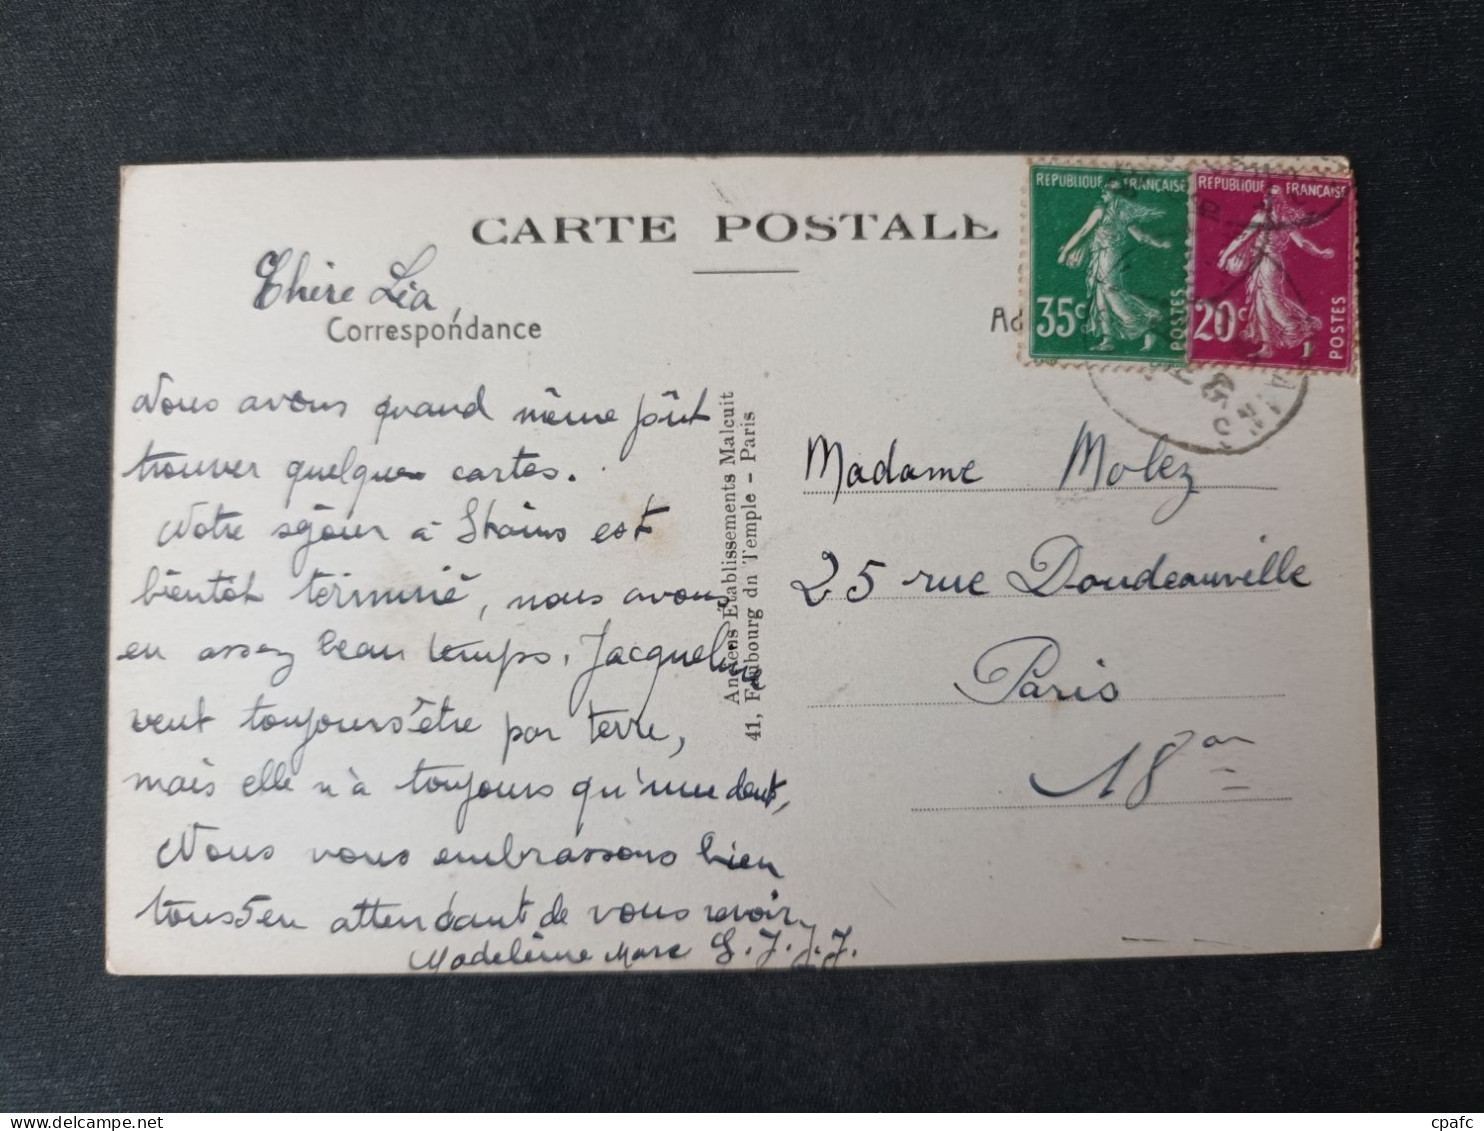 CARTE POSTALE
Chère Léa,
Correspondance
Nous avons quand même pût
trouver quelques cartes.
Notre séjour à Stains est
bientôt terminé, nous avons
en assez beau temps. Jacqueline
veut toujours être par terre,
mais elle n'à toujours qu'une dent,
Nous vous embrassons bien
tous en attendant de vous revoir
Madeleine Marc G. J. J. J.
Anciens Établissements Malcuit
41, Faubourg du Temple - Paris
REPUBLIQUE FRANÇAISE
35c
POSTES
REPUBLIQUE FRANÇAISE
20c
POSTES
Madame Molez
25 rue Doudeauville
Paris
18
cpafc